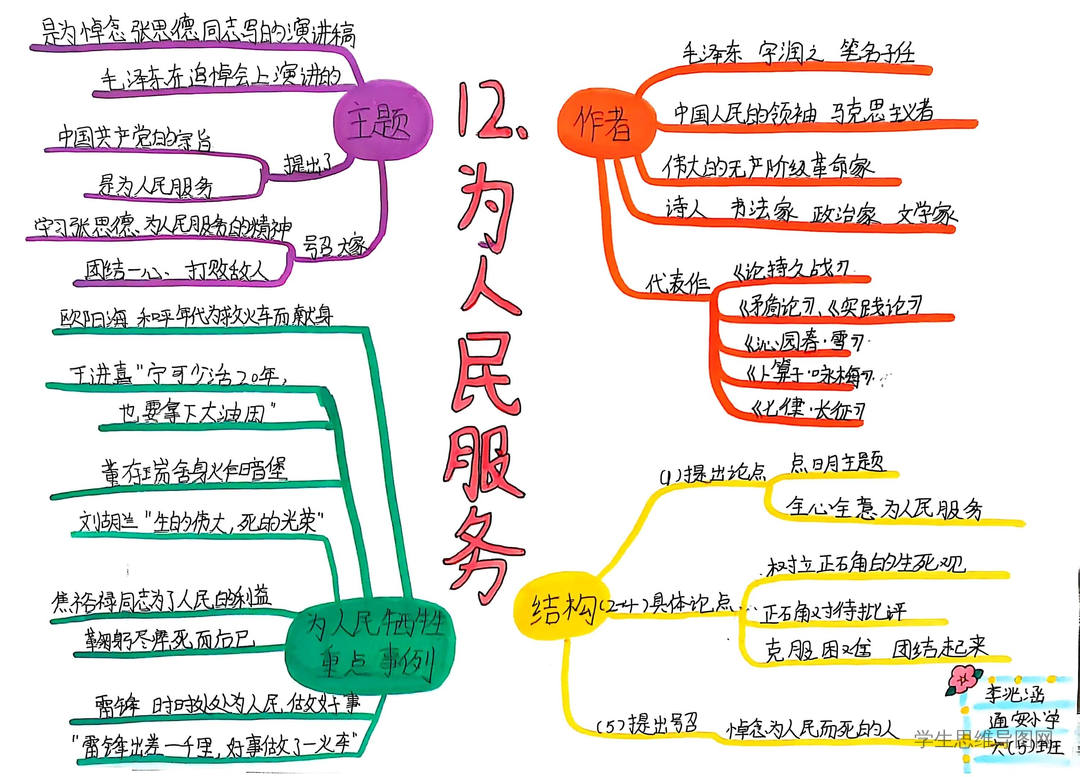 12、为人民服务
主题
是为悼念张思德同志写的演讲稿
毛泽东在追悼会上演讲的
提出了
中国共产党的宗旨
是为人民服务
号召大家
学习张思德、为人民服务的精神
团结一心、打败敌人
作者
毛泽东 字润之 笔名子任
中国人民的领袖 马克思主义者
伟大的无产阶级革命家
诗人 书法家 政治家 文学家
代表作
《论持久战》.
《矛盾论》、《实践论》
《沁园春·雪》.
《卜算子·咏梅》.
《七律·长征》
为人民牺牲
重点事例
欧阳海 和平年代为救火车而献身
王进喜"宁可少活20年,
也要拿下大油田"
董存瑞舍身火作暗堡
刘胡兰"生的伟大,死的光荣"
焦裕禄同志为了人民的利益
鞠躬尽瘁死而后已
雷锋 时时处处为人民做好事
"雷锋出差一千里,好事做了一火车"
结构
(1)提出论点
点明主题
全心全意为人民服务
(2-4)具体论点...
树立正确的生死观
正确对待批评
克服困难 团结起来
(5)提出号召
悼念为人民而死的人
李兆涵
通安小学
六(5)班
学生思维导图网